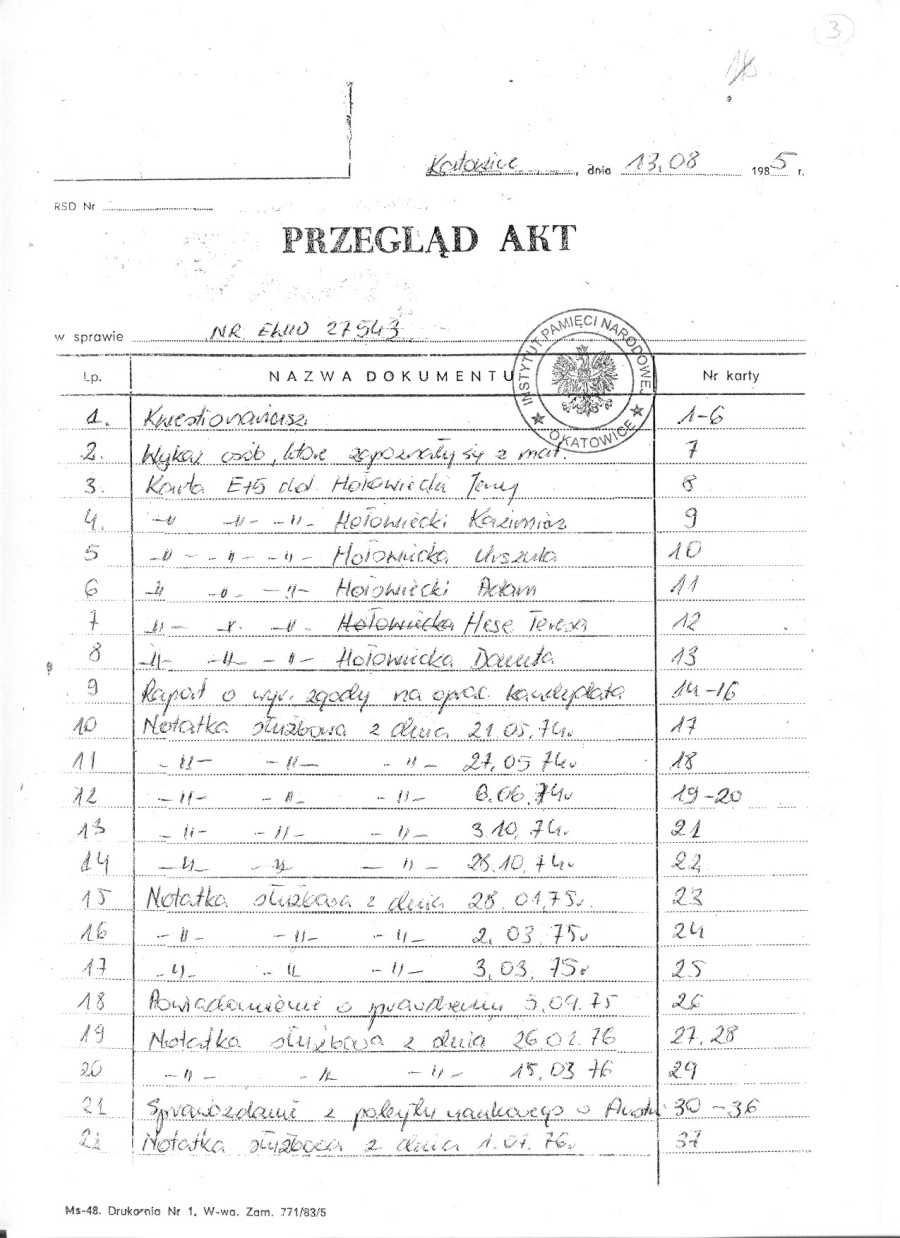 3
Katowice, dnia 13,08 1985 r.
RSD Nr
PRZEGLĄD AKT
w sprawie NR EWID 27543
INSTYTUT PAMIĘCI NARODOWEJ
O KATOWICE
Lp. NAZWA DOKUMENTU Nr karty
1. Kwestionariusz 1-6
2. Wykaz osób, które zapoznały się z mat. 7
3. Karta E-15 dot. Hołowiecki Jerzy 8
4. -"- -"- -"- Hołowiecki Kazimierz 9
5 -"- -"- -"- Hołowiecka Urszula 10
6 -"- -"- -"- Hołowiecki Adam 11
7 -"- -"- -"- Hołowiecka Hese Teresa 12
8 -"- -"- -"- Hołowiecka Danuta 13
9 Raport o wyr. zgody na oprac. kandydata 14-16
10 Notatka służbowa z dnia 21.05.74r 17
11 -"- -"- -"- 27.05 74r 18
12 -"- -"- -"- 6.06.74r 19-20
13 -"- -"- -"- 3.10.74r. 21
14 -"- -"- -"- 28.10.74r 22
15 Notatka służbowa z dnia 28.01.75r. 23
16 -"- -"- -"- 2.03.75r 24
17 -"- -"- -"- 3.03.75r 25
18 Powiadomienie o sprawdzeniu 5.09.75 26
19 Notatka służbowa z dnia 26 02.76 27,28
20 -"- -"- -"- 15.03 76 29
21 Sprawozdanie z pobytu naukowego w 30-36
22 Notatka służbowa z dnia 1.07.76r 37
Ms-48. Drukarnia Nr 1, W-wa. Zam. 771/83/5